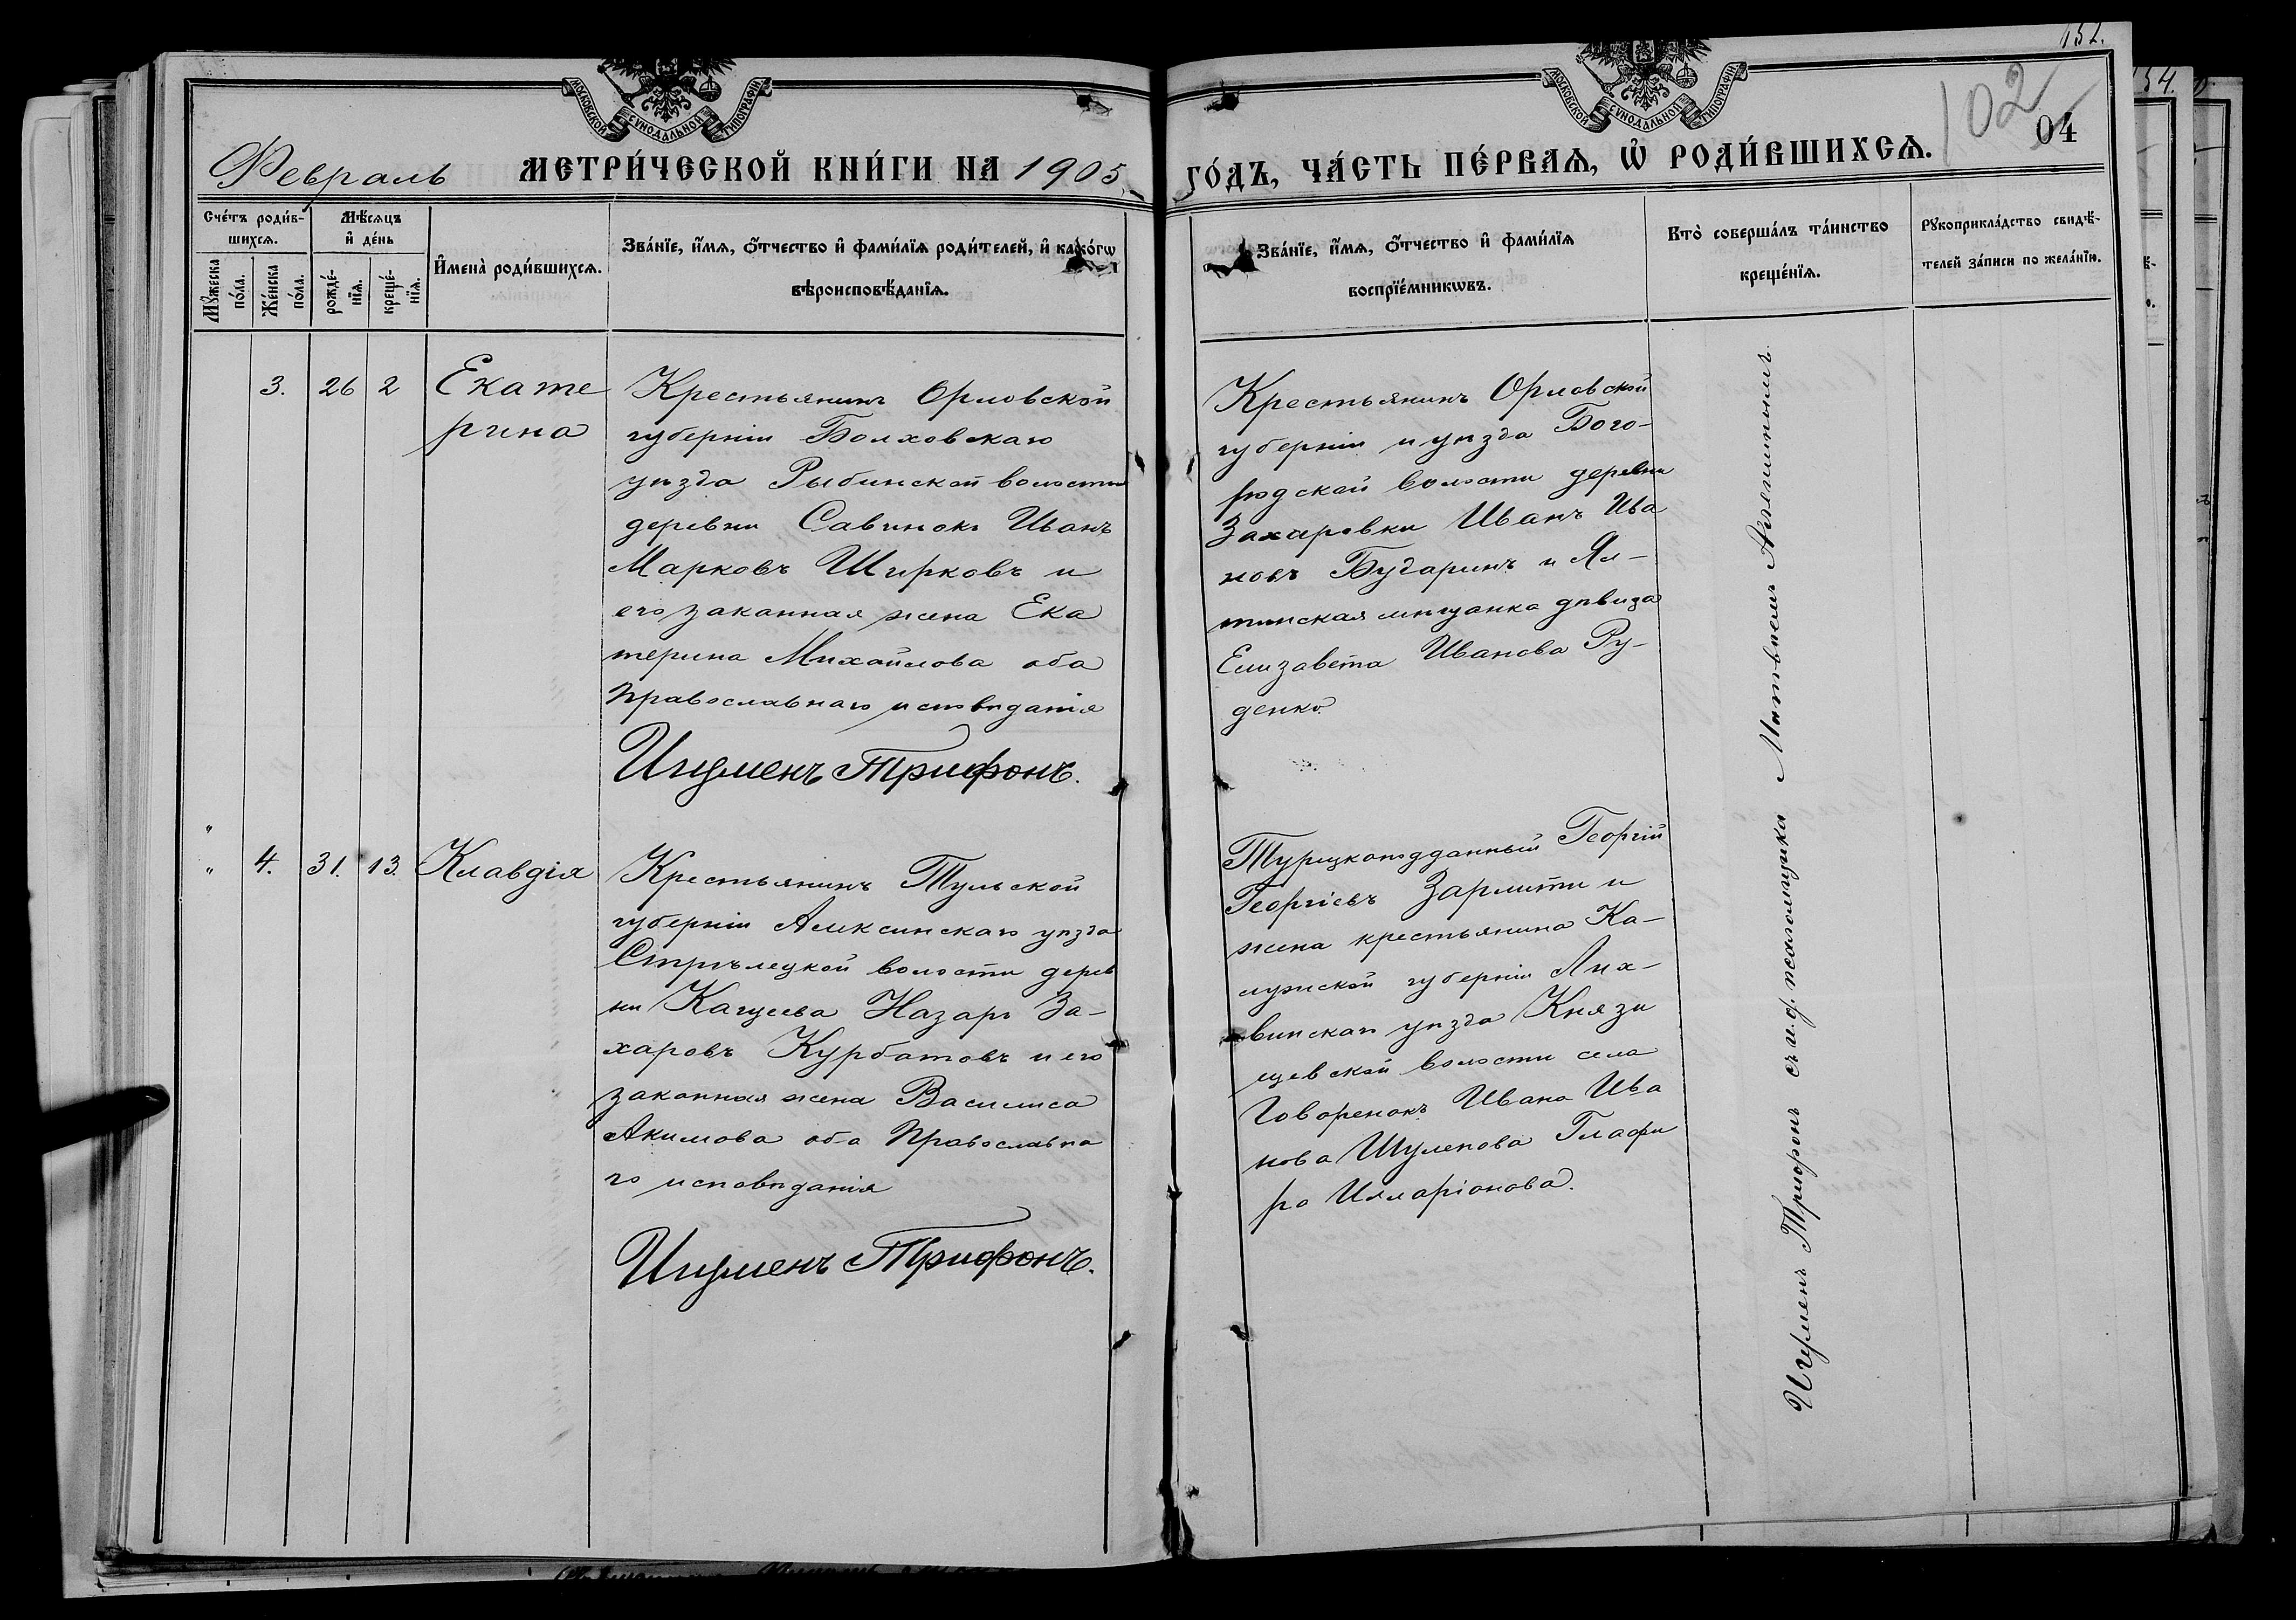 152.
102
04
154.
МОСКОВСКОЙ СѴНОДАЛЬНОЙ ТИПОГРАФІИ
МОСКОВСКОЙ СѴНОДАЛЬНОЙ ТИПОГРАФІИ
Февраль МЕТРИ́ЧЕСКОЙ КНИ́ГИ НА 1905
ГО́ДЪ, ЧА́СТЬ ПЕ́РВАѦ, Ѡ҆ РОДИ́ВШИХСѦ.
Сче́тъ роди́в-
шихсѧ.
Мꙋ́жеска
по́ла.
Же́нска
по́ла.
Мѣ́сѧцъ
и҆ де́нь
рожде́-
нїѧ.
креще́-
нїѧ.
И҆мена̀ роди́вшихсѧ.
Зва́нїе, и҆́мѧ, ѻ҆́тчество и҆ фами́лїѧ роди́телей, и҆ како́гѡ
вѣроисповѣ́данїѧ.
Зва́нїе, и҆́мѧ, ѻ҆́тчество и҆ фами́лїѧ
воспрїе́мникѡвъ.
Кто̀ соверша́лъ та́инство
креще́нїѧ.
Рꙋкоприкла́дство свидѣ́-
телей за́писи по жела́нїю.
3. 26 2
Екате
рина
Крестьянинъ Орловской
губерніи Болховскаго
уѣзда Рыбинской волости
деревни Савинокъ Иванъ
Марковъ Ширковъ и
его законная жена Ека
терина Михайлова оба
Православнаго исповѣданія
Игуменъ Трифонъ.
Крестьянинъ Орловской
губерніи и уѣзда Бого-
родской волости деревни
Захаровки Иванъ Ива
новъ Бударинъ и Ял-
тинская мѣщанка дѣвица
Елизавета Иванова Ру-
денко
" 4. 31. 13.
Клавдія
Крестьянинъ Тульской
губерніи Алексинскаго уѣзда
Стрѣлецкой волости дерев
ни Кащеева Назаръ За-
харовъ Курбатовъ и его
законная жена Василиса
Акимова оба Православна
го исповѣданія
Игуменъ Трифонъ.
Турецкоподданный Георгій
Георгіевъ Зармити и
жена крестьянина Ка-
лужской губерніи Лих-
винскаго уѣзда Князи
щевской волости села
Говоренокъ Ивана Ива
нова Шулепова Глафи
ра Илларіонова.
Игуменъ Трифонъ съ и. д. псаломщика Матвѣемъ